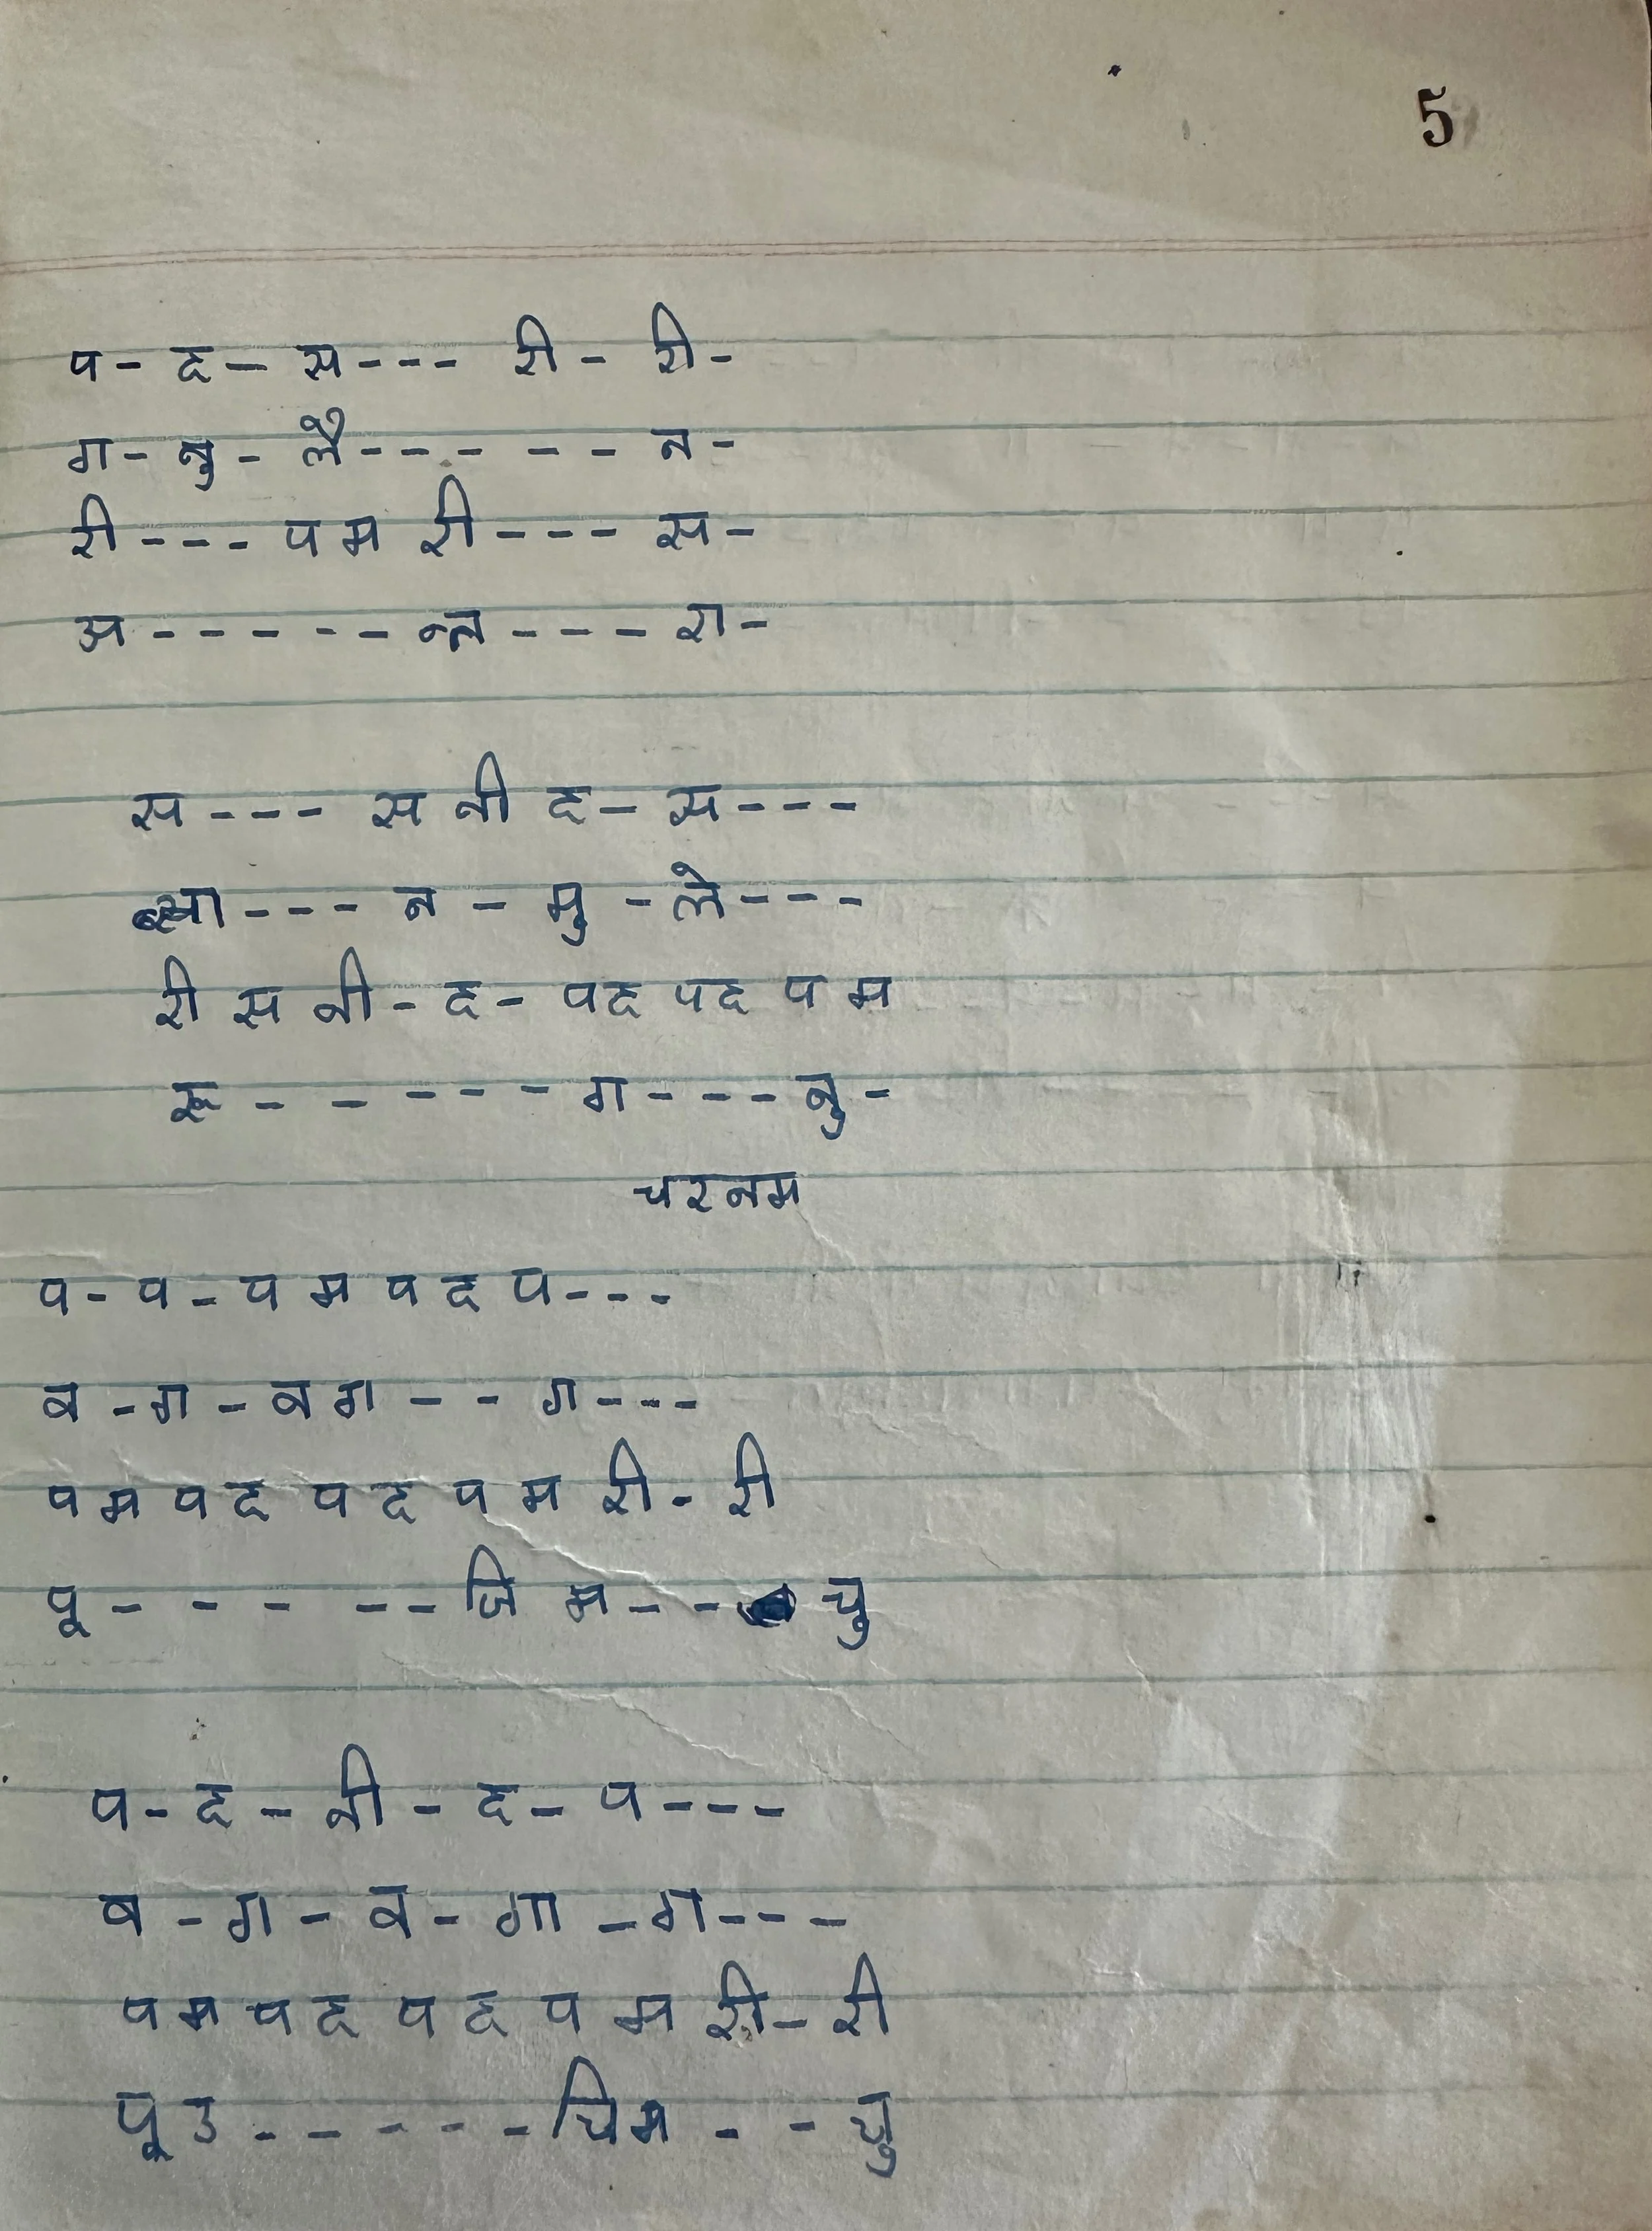 5
प - द - स - - - री - री -
ग - नु - लै - - - - - - न -
री - - - प म री - - - स -
अ - - - - - - न्त - - - रा -
स - - - स नी द - स - - -
न - मु - ले - - -
री स नी - द - पद पद प म
रू - - - - - - ग - - - नु -
चरनम
प - प - प म प द प - - -
ब - ग - ब ग - - ग - - -
प म प द प द प म री - री
पू - - - - - - जि म - - - चु
प - द - नी - द - प - - -
ब - ग - ब - गा - ग - - -
प म प द प द प म री - री
पू उ - - - - - - चिम - - चु